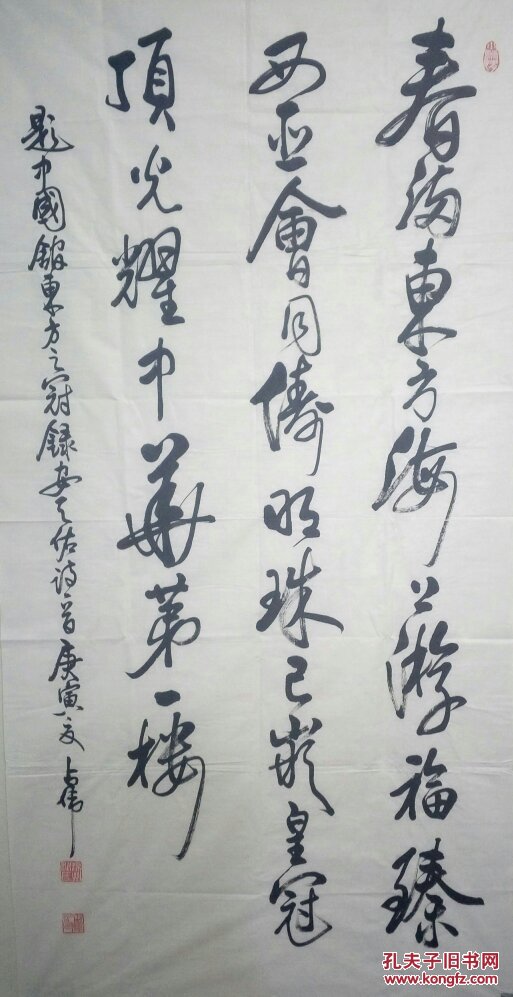 春滿東方海上游福臻
亞會同儔明珠已嵌皇冠
頂光耀中華第一樓
題中國館東方之冠録安天佑詩一首庚寅夏
孔夫子旧书网
www.kongfz.com